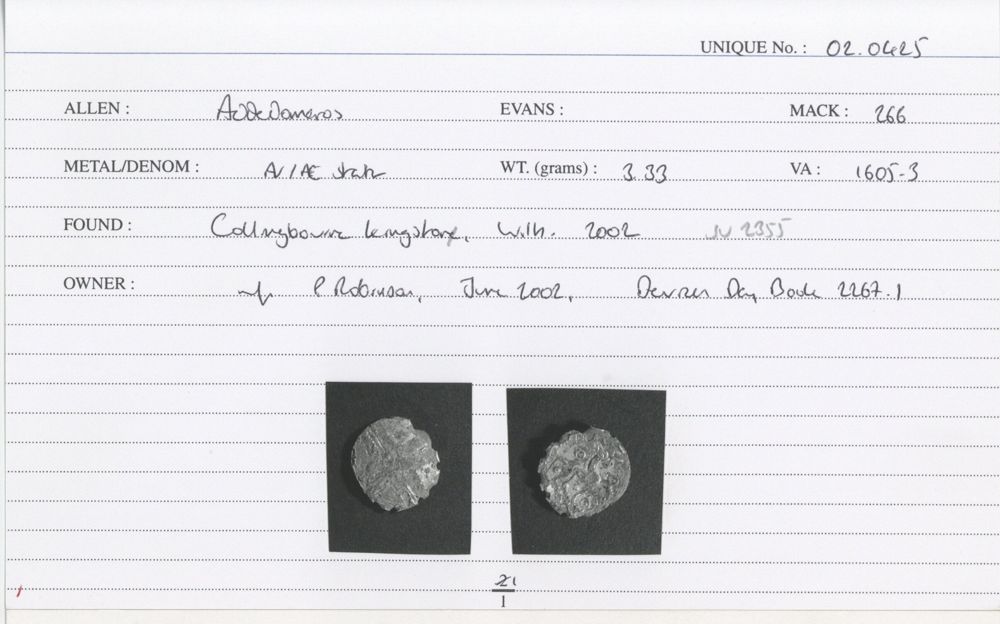 UNIQUE No. : 02.0425
ALLEN : Addedomaros EVANS : MACK : 266
METAL/DENOM : AV/AE stater WT. (grams) : 3.33 VA : 1605-3
FOUND : Collingbourne Kingston, Wilts. 2002 SU 2355
OWNER : P Robinson, June 2002, Devizes Day Book 2267.1
21
1